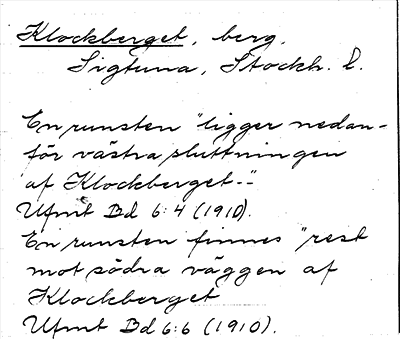 Klockberget, berg.
Sigtuna, Stockh. l.
En runsten "ligger nedan-
för västra sluttningen
af Klockberget."
Ufmt Bd 6:4 (1910).
En runsten finnes "rest
mot södra väggen af
Klockberget
Ufmt Bd 6:6 (1910).